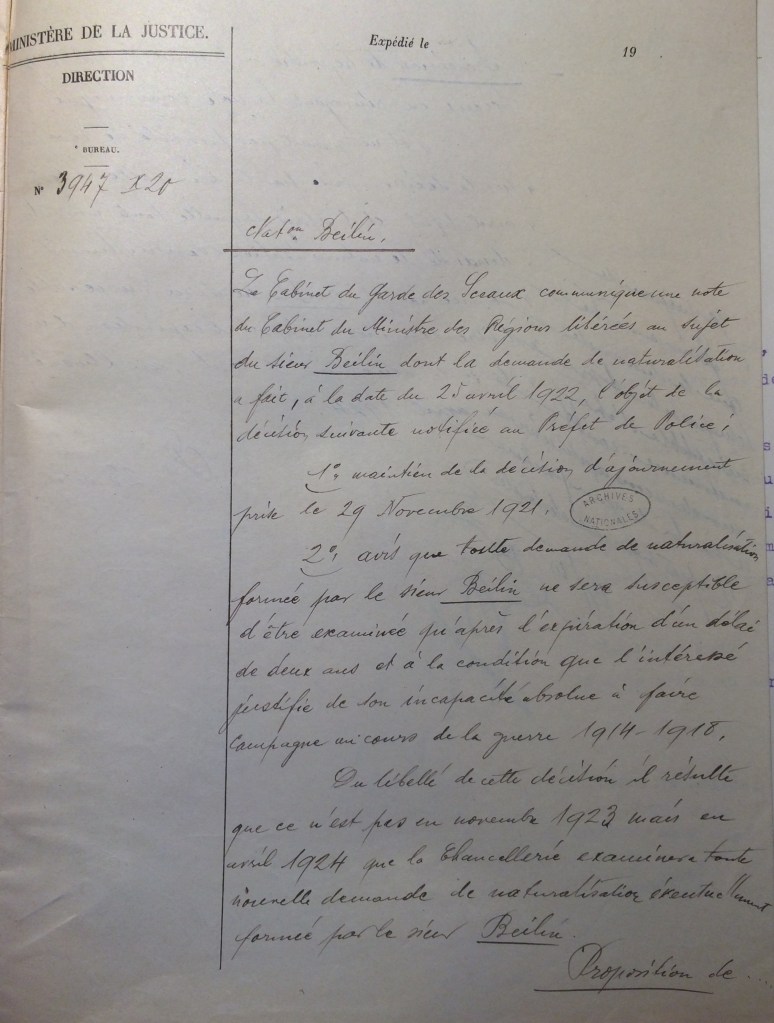 MINISTÈRE DE LA JUSTICE.
DIRECTION
BUREAU.
N° 3947 X 20
Expédié le 19
Naton Beilin.
Le Cabinet du Garde des Sceaux communique une note
du Cabinet du Ministre des Régions libérées au sujet
du sieur Beilin dont la demande de naturalisation
a fait, à la date du 25 avril 1922, l'objet de la
décision suivante notifiée au Préfet de Police :
1° maintien de la décision d'ajournement
prise le 29 Novembre 1921.
ARCHIVES
NATIONALES
2° avis que toute demande de naturalisation
formée par le sieur Beilin ne sera susceptible
d'être examinée qu'après l'expiration d'un délai
de deux ans et à la condition que l'intéressé
justifie de son incapacité absolue à faire
campagne au cours de la guerre 1914-1918.
Du libellé de cette décision il résulte
que ce n'est pas en novembre 1923 mais en
avril 1924 que la Chancellerie examinera toute
nouvelle demande de naturalisation éventuellement
formée par le sieur Beilin.
Proposition de ....